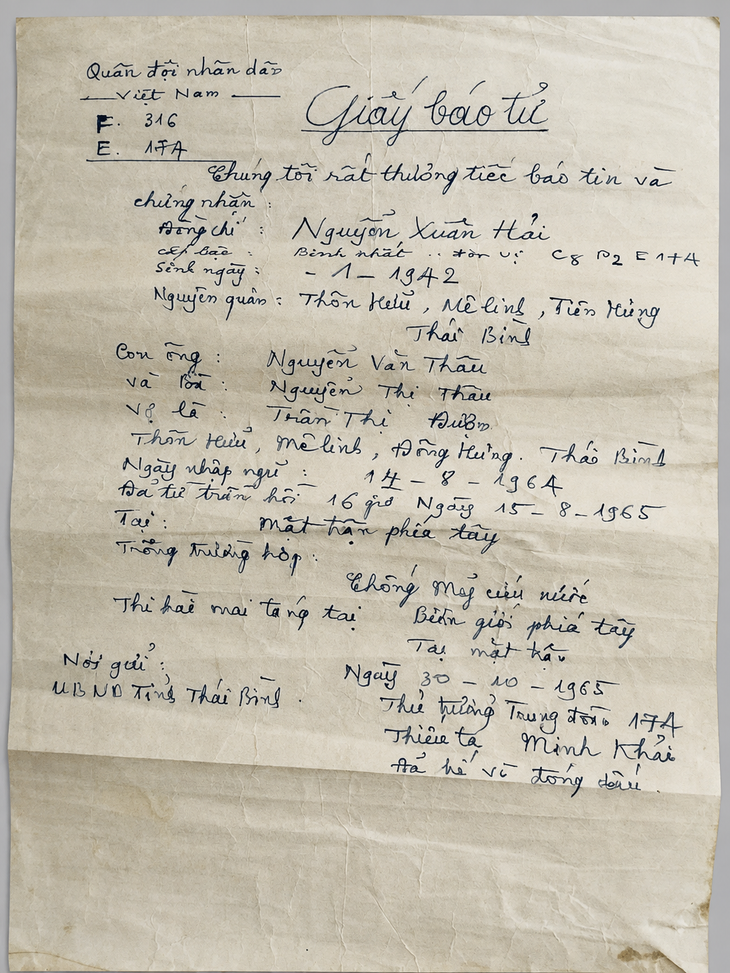 Quân đội nhân dân
Việt Nam
F. 316
E. 174
Giấy báo tử
Chúng tôi rất thương tiếc báo tin và
chứng nhận :
Đồng chí : Nguyễn Xuân Hải
cấp bậc : Binh nhất .. đơn vị C8 D2 E 174
Sinh ngày : - 1 - 1942
Nguyên quán : Thôn Hữu, Mê linh, Tiên Hưng
Thái Bình
Con ông : Nguyễn Văn Thâu
và Bà : Nguyễn Thị Thâu
Vợ là : Trần Thị
Thôn Hữu, Mê linh, Đông Hưng. Thái Bình
Ngày nhập ngũ : 14 - 8 - 1964
Đã từ trần hồi 16 giờ Ngày 15 - 8 - 1965
Tại : Mặt trận phía tây
Trong trường hợp :
Chống Mỹ cứu nước
Thi hài mai táng tại Biên giới phía tây
Tại mặt trận
Nơi gửi : Ngày 30 - 10 - 1965
UBND Tỉnh Thái Bình. Thủ trưởng Trung đoàn 174
Thiếu tá Minh Khải
Đã ký và đóng dấu.